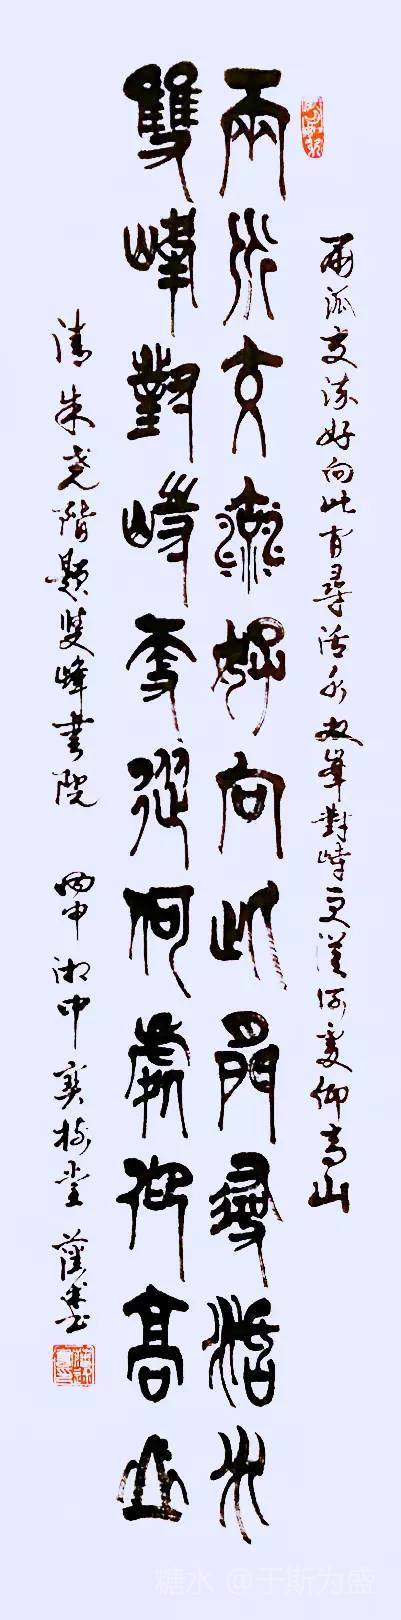 兩派交流好向此間尋活水双峯對峙更從何處仰高山
兩派交流好向此間尋活水
雙峰對峙更從何處仰高山
清朱堯階題雙峰書院 丙申湘中寶樹堂
糖水 @于斯为盛